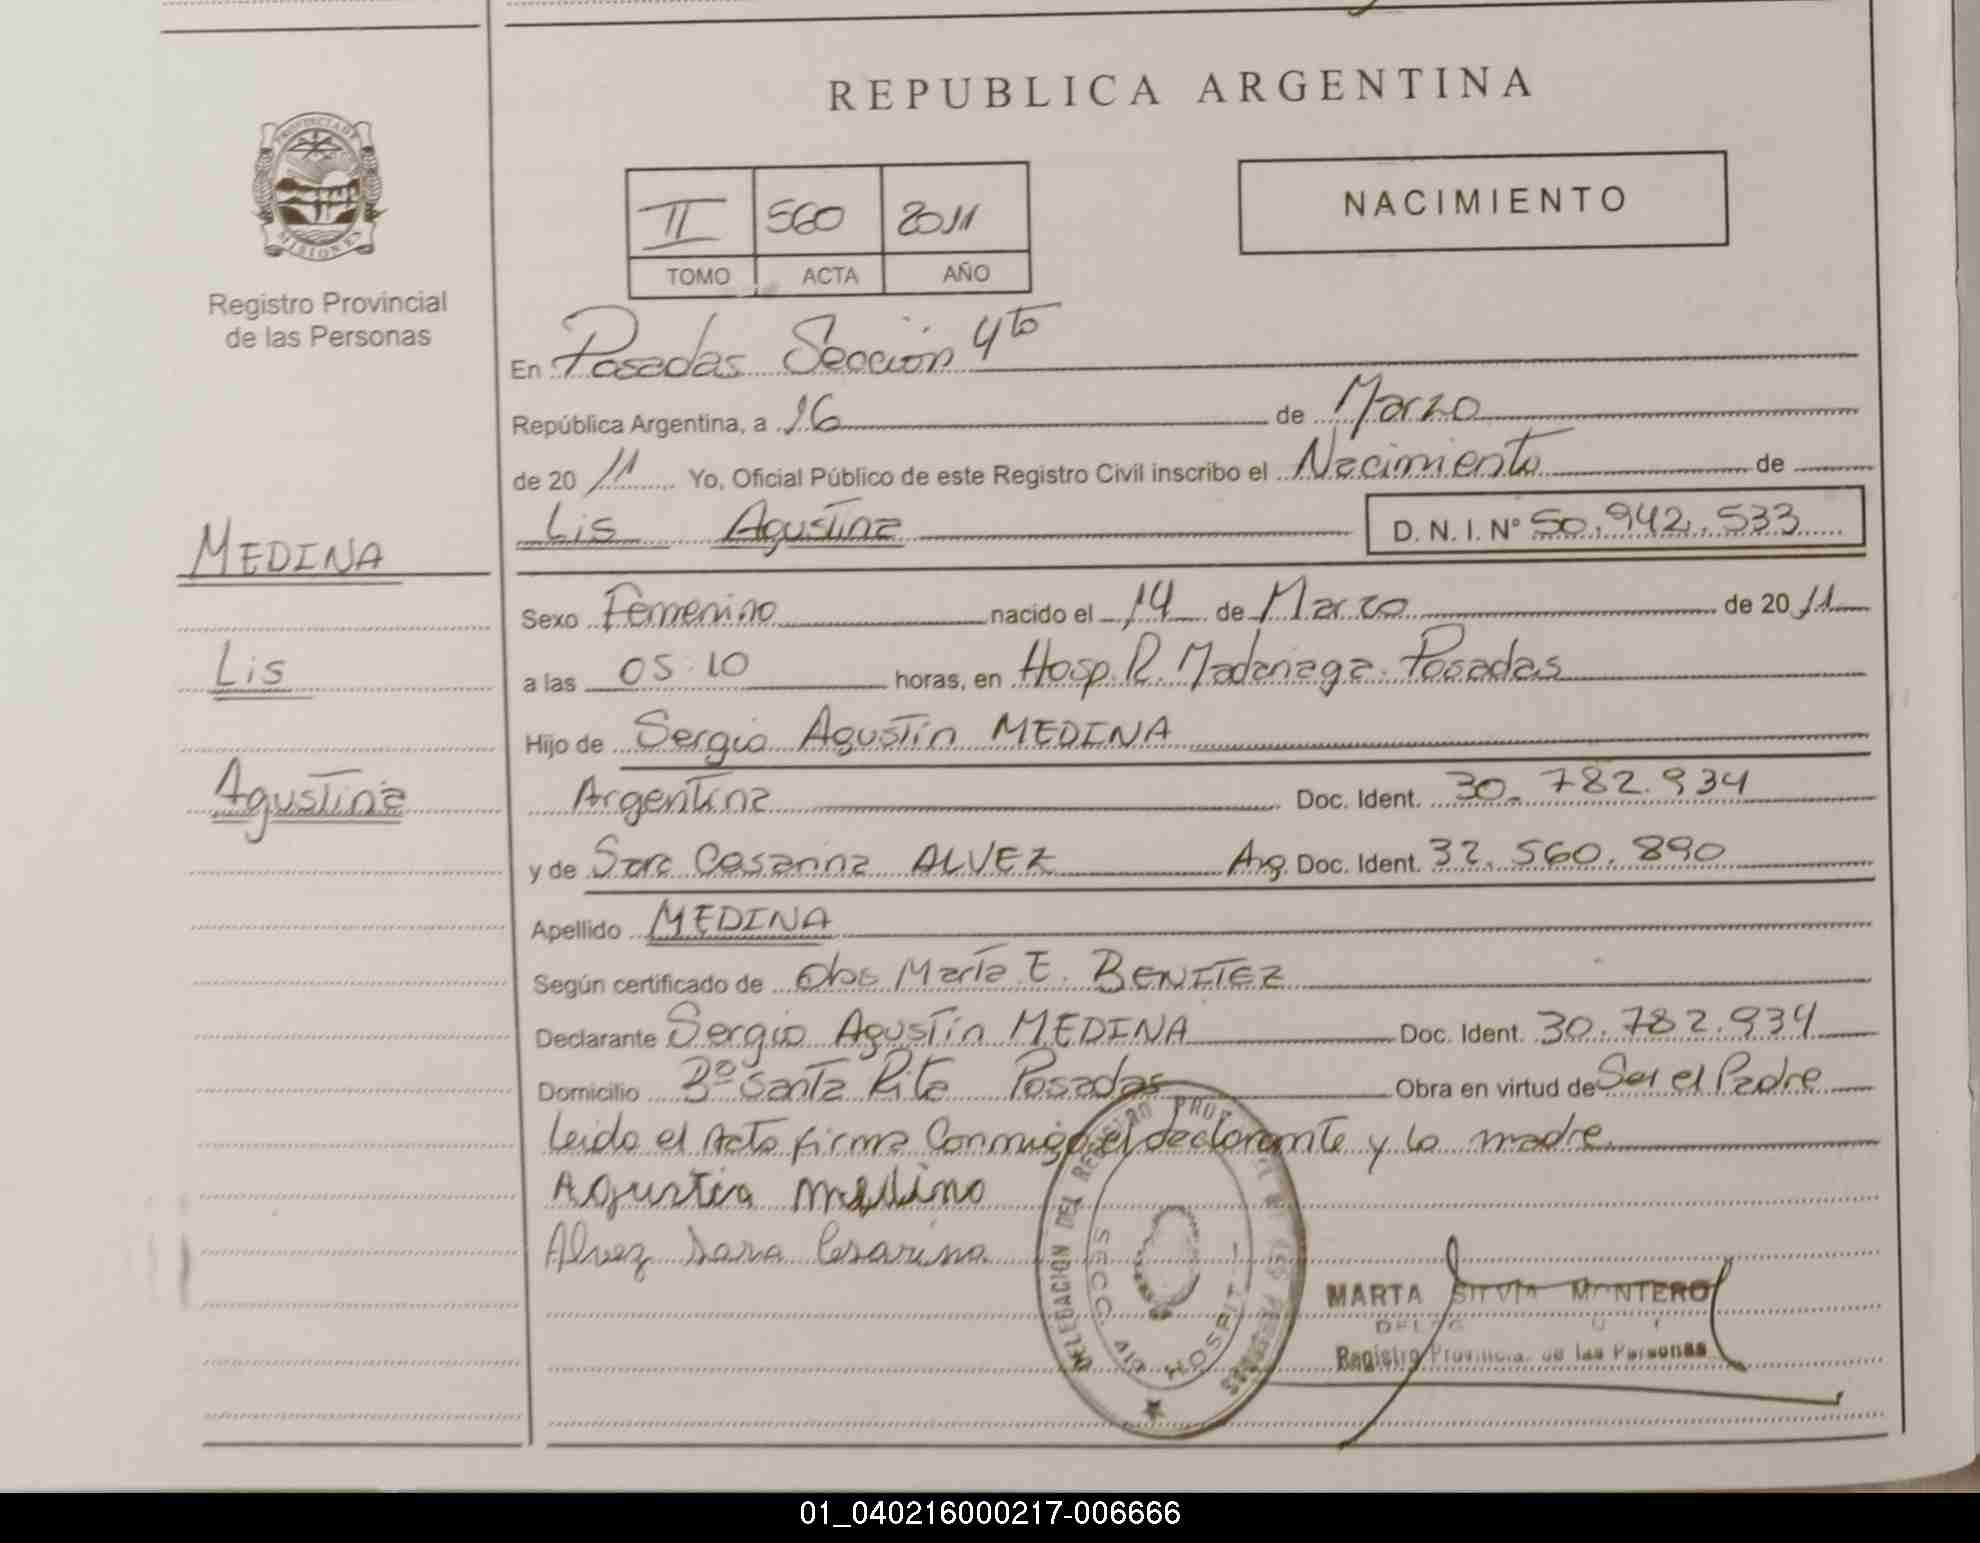 REPUBLICA ARGENTINA
PROVINCIA DE
MISIONES
Registro Provincial
de las Personas
II 560 2011
TOMO ACTA AÑO
NACIMIENTO
En Posadas Sección 4to
República Argentina, a 16 de Marzo
de 20 11 Yo, Oficial Público de este Registro Civil inscribo el Nacimiento de
Lis Agustina D. N. I. Nº 50.942.533
MEDINA
Lis
Agustina
Sexo Femenino nacido el 14 de Marzo de 20 11
a las 05.10 horas, en Hosp. R. Madariaga. Posadas
Hijo de Sergio Agustín MEDINA
Argentina Doc. Ident. 30.782.934
y de Sara Cesarina ALVEZ Arg. Doc. Ident. 32.560.890
Apellido MEDINA
Según certificado de Obs María E. BENITEZ
Declarante Sergio Agustín MEDINA Doc. Ident. 30.782.934
Domicilio Bº Santa Rita Posadas Obra en virtud de Ser el Padre
Leido el Acta firma Conmigo el declarante y la madre
Agustin Medina
Alvez Sara Cesarina
DELEGACION DEL REGISTRO
SECC. 4ta HOSPIT
MARTA SILVIA MONTERO
Registro Provincial de las Personas
01_040216000217-006666